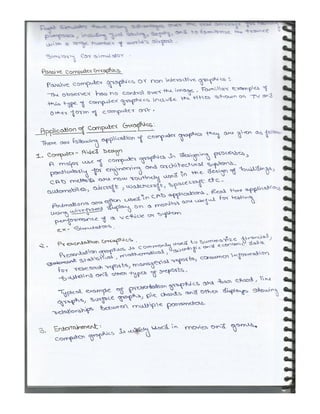 Flight Simulator have many advantages over the real aircraft for training
purposes, including fuel saving, safety, and to familiarize the trainee
with a large number of world's airport.
Similarly car simulator.
Passive Computer Graphics
Passive computer graphics or non interactive graphics:
The observer has no control over the image. Familiar examples of
this type of computer graphics include the titles shown on TV and
other form of computer art.
Application of Computer Graphics:
There are following application of computer graphics they are given as
1. Computer-Aided Design
A major use of computer graphics is designing processes,
particularly for engineering and architectural systems.
CAD methods are now routinely used in the design of buildings,
automobiles, aircraft, watercraft, spacecraft etc.
Animations are often used in CAD applications. Real time
using wireframe display on a monitor are useful for testing
performance of a vehicle or system
ex- Simulators.
2. Presentation Graphics
Presentation graphics is commonly used to summarize financial,
statistical, mathematical, scientific and economic data
for research reports, managerial reports, consumer information
bulletins and other types of reports.
Typical example of presentation graphics are bar chart, line
graphs, surface graphs, pie charts and other displays showing
relationships between multiple parameters
3. Entertainment:
computer graphics is widely used in movies and games.